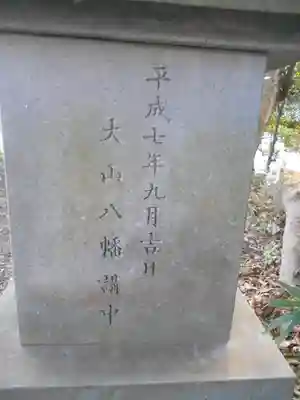 平成七年九月吉日
大山八幡講中